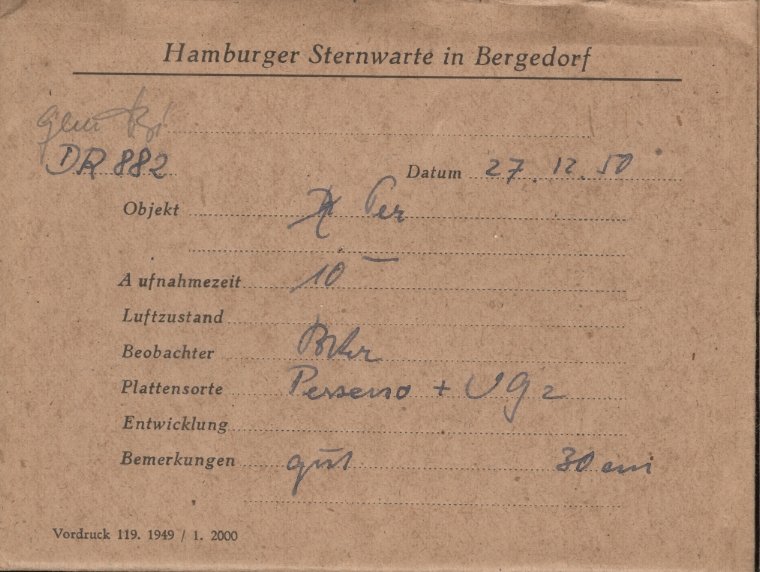 Hamburger Sternwarte in Bergedorf
DR 882
Datum 27. 12. 50
Objekt Per
Aufnahmezeit 10
Luftzustand
Beobachter
Plattensorte + UG 2
Entwicklung
Bemerkungen gut 30 cm
Vordruck 119. 1949 / 1. 2000